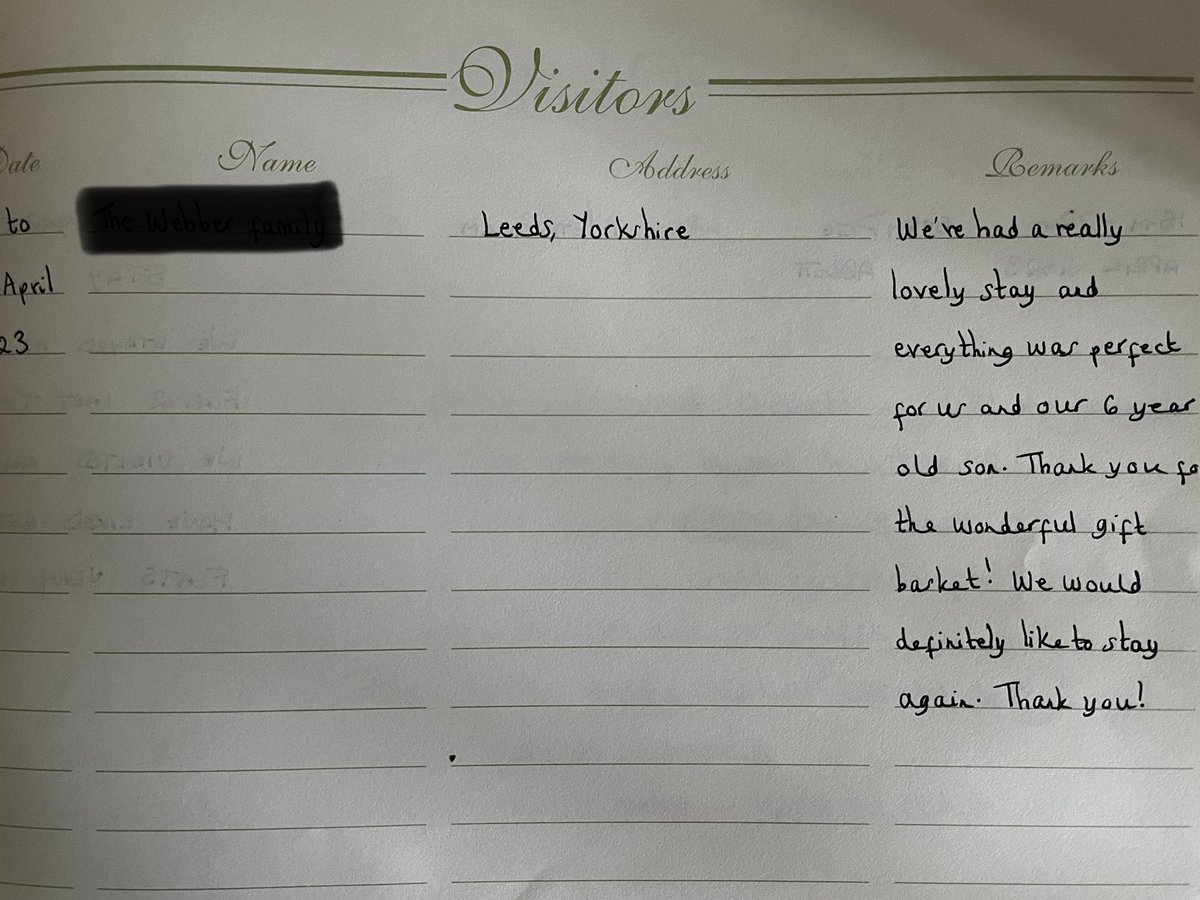 Visitors
Date Name Address Remarks
to The Webber family Leeds, Yorkshire We've had a really
April lovely stay and
23 everything was perfect
for us and our 6 year
old son. Thank you fo
the wonderful gift
basket! We would
definitely like to stay
again. Thank you!